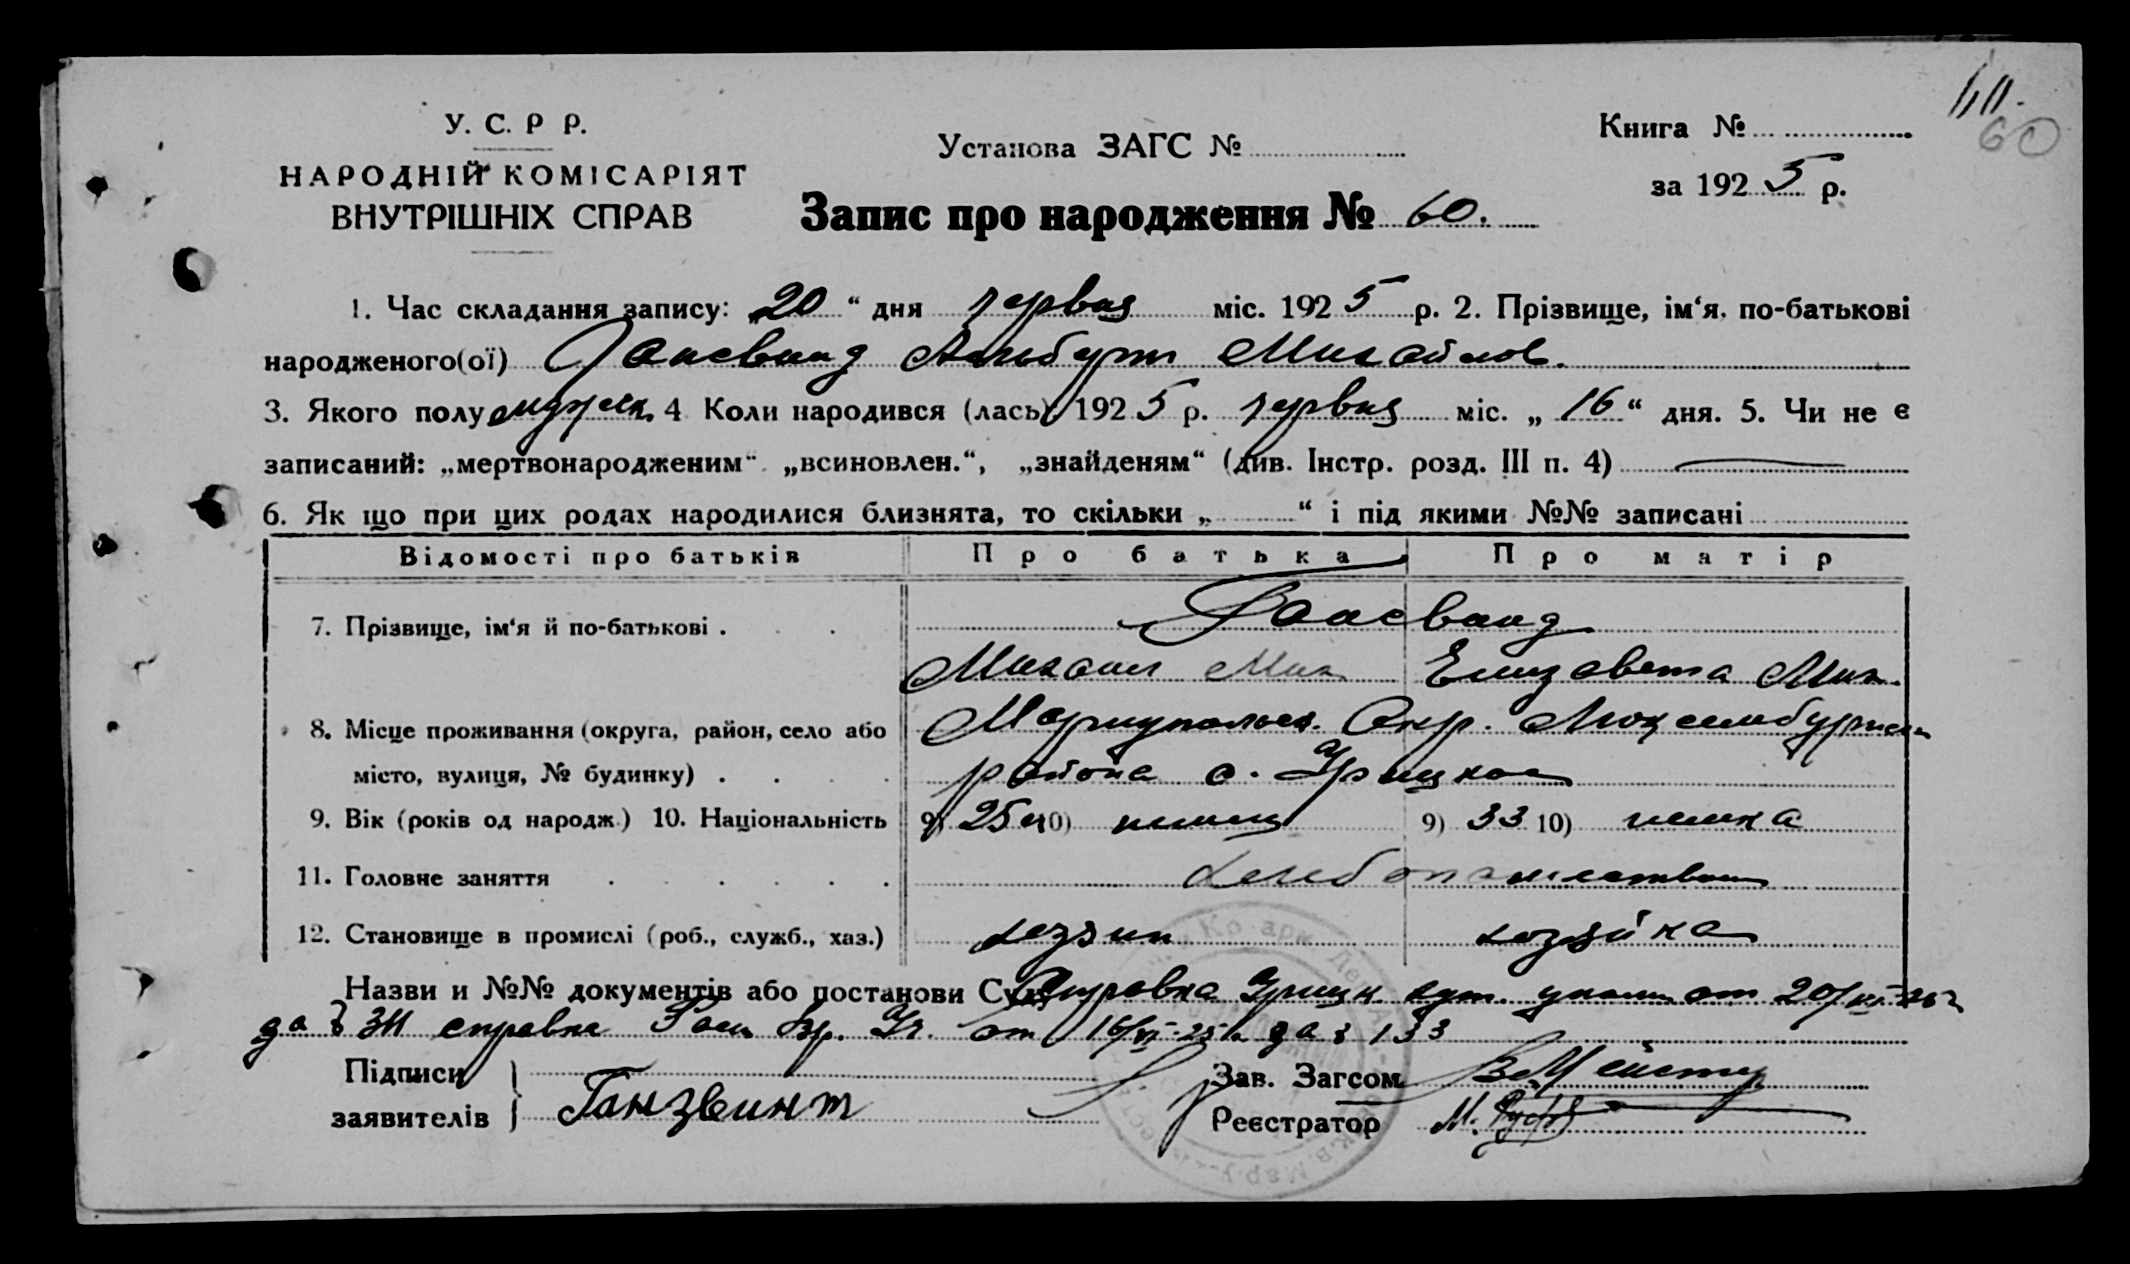 У. С. Р Р.
НАРОДНІЙ КОМІСАРІЯТ
ВНУТРІШНІХ СПРАВ
Установа ЗАГС №
Книга №
за 1925 р.
60
Запис про народження № 60.
1. Час складання запису: „20“ дня червня міс. 1925 р. 2. Прізвище, ім‘я, по-батькові
народженого(ої) Гансвинд Альбугт Михайлов.
3. Якого полу мужеск. 4 Коли народився (лась) 1925 р. червня міс. „16“ дня. 5. Чи не є
записаний: „мертвонародженим“ „всиновлен.“, „знайденям“ (див. Інстр. розд. III п. 4)
6. Як що при цих родах народилися близнята, то скільки „ “ і під якими №№ записані
Відомості про батьків Про батька Про матір
7. Прізвище, ім‘я й по-батькові . Гансванд
Михаил Мих Елизавета Мих.
8. Місце проживання (округа, район, село або Мариупольск. Окр. Люксембургск
місто, вулиця, № будинку) . района с. Урицкое
9. Вік (років од народж.) 10. Національність 9) 25 10) немец 9) 33 10) немка
11. Головне заняття хлебопашество
12. Становище в промислі (роб., служб., хаз.) хозяин хозяйка
Назви и №№ документів або постанови Суду Справка Урицк от 20/VI
за № справка от 16/VI-25 за № 133
Підписи
заявителів Ганзвинт
Зав. Загсом
Реєстратор М.